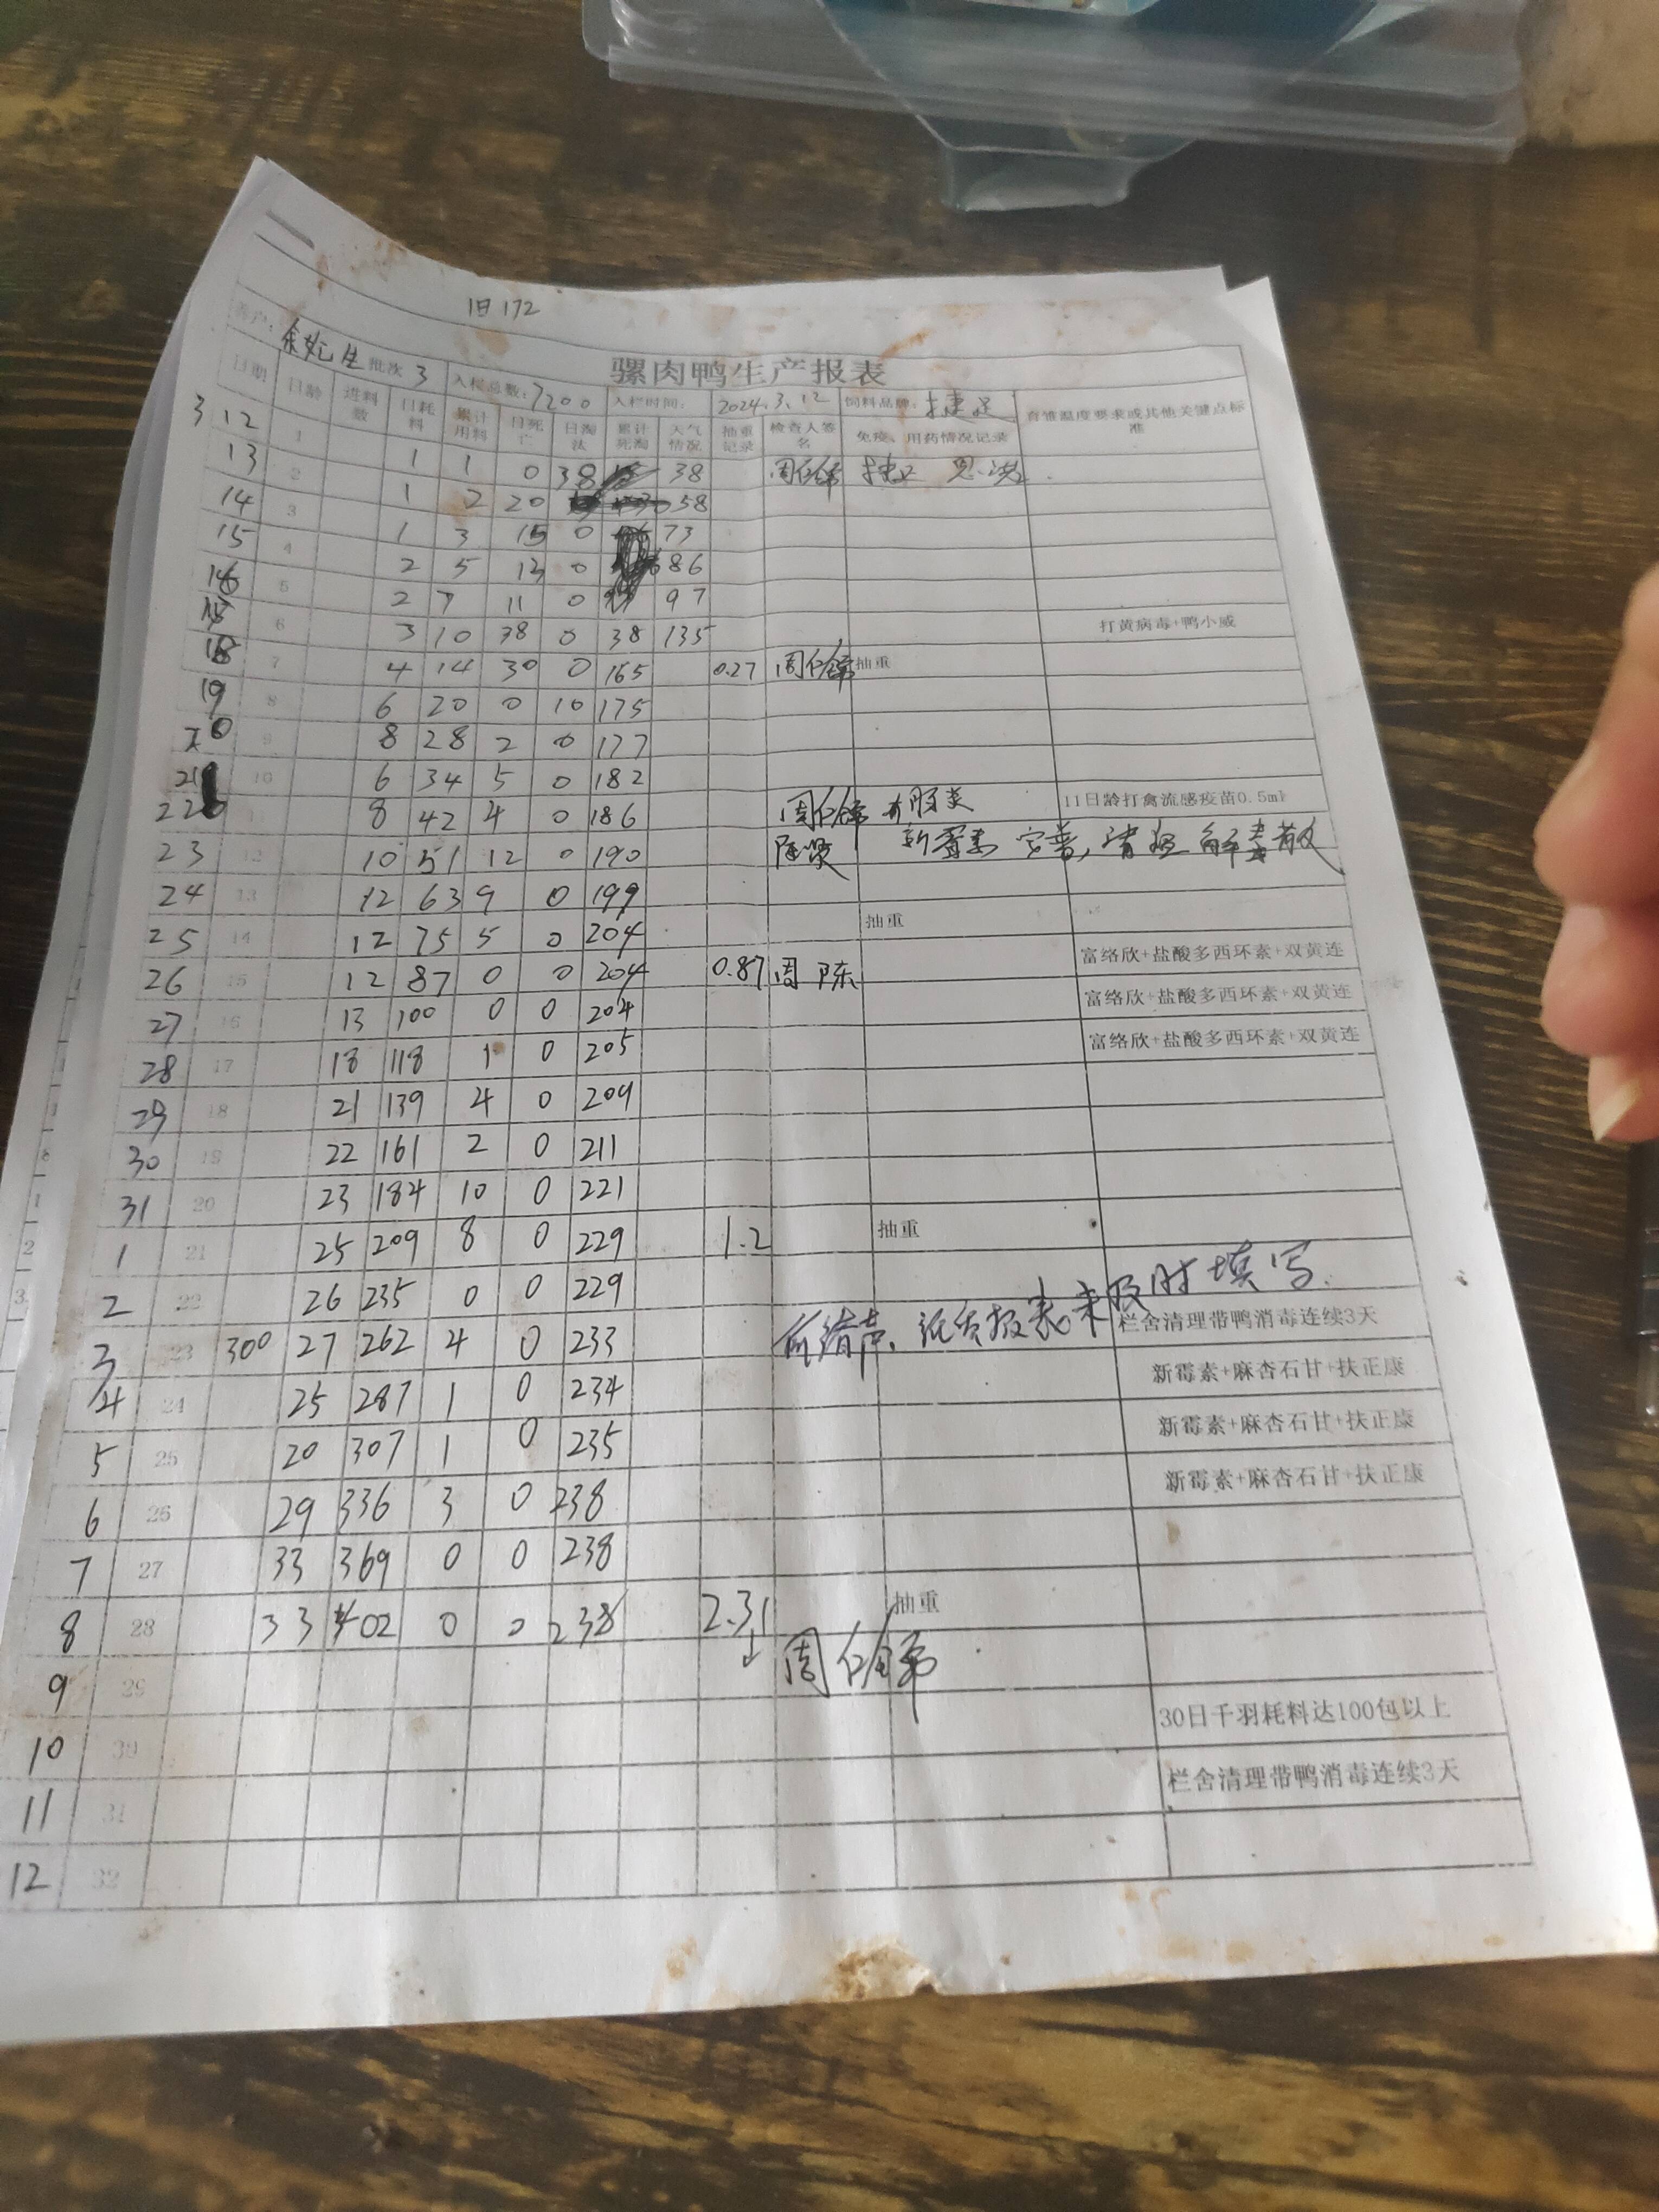 旧172
骡肉鸭生产报表
客户: 生 批次 3 入栏总数: 7200 入栏时间: 2024.3.12 饲料品牌: 捷
日期 日龄 进料数 日耗料 累计用料 日死亡 日淘汰 累计死淘 天气情况 抽重记录 检查人签名 免疫、用药情况记录 育雏温度要求或其他关键点标准
3 12 1 1 1 0 38 38 周
13 2 1 2 20 58
14 3 1 3 15 0 73
15 4 2 5 13 0 86
16 5 2 7 11 0 97
6 3 10 38 0 38 135 打黄病毒+鸭小威
18 7 4 14 30 0 165 0.27 周 抽重
19 8 6 20 0 10 175
20 9 8 28 2 0 177
21 10 6 34 5 0 182
22 11 8 42 4 0 186 周 11日龄打禽流感疫苗0.5ml
23 12 10 51 12 0 190 新霉素 解毒散
24 13 12 63 9 0 199
25 14 12 75 5 0 204 抽重
26 15 12 87 0 0 204 0.87 周 陈 富络欣+盐酸多西环素+双黄连
27 16 13 100 0 0 204 富络欣+盐酸多西环素+双黄连
28 17 18 118 1 0 205 富络欣+盐酸多西环素+双黄连
29 18 21 139 4 0 209
30 19 22 161 2 0 211
31 20 23 184 10 0 221
1 21 25 209 8 0 229 1.2 抽重
2 22 26 235 0 0 229
3 23 300 27 262 4 0 233 报表未及时填写. 栏舍清理带鸭消毒连续3天
4 24 25 287 1 0 234 新霉素+麻杏石甘+扶正康
5 25 20 307 1 0 235 新霉素+麻杏石甘+扶正康
6 26 29 336 3 0 238 新霉素+麻杏石甘+扶正康
7 27 33 369 0 0 238
8 28 33 402 0 0 238 2.31 抽重
周
9 29
10 30 30日千羽耗料达100包以上
11 31 栏舍清理带鸭消毒连续3天
12 32